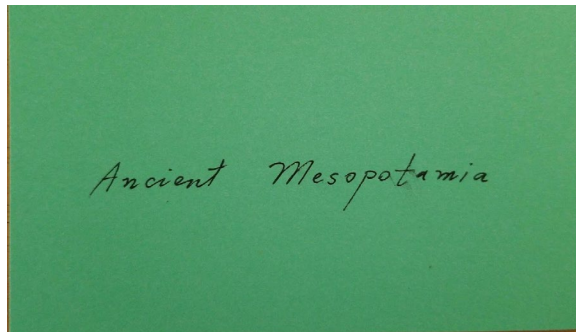 Ancient Mesopotamia